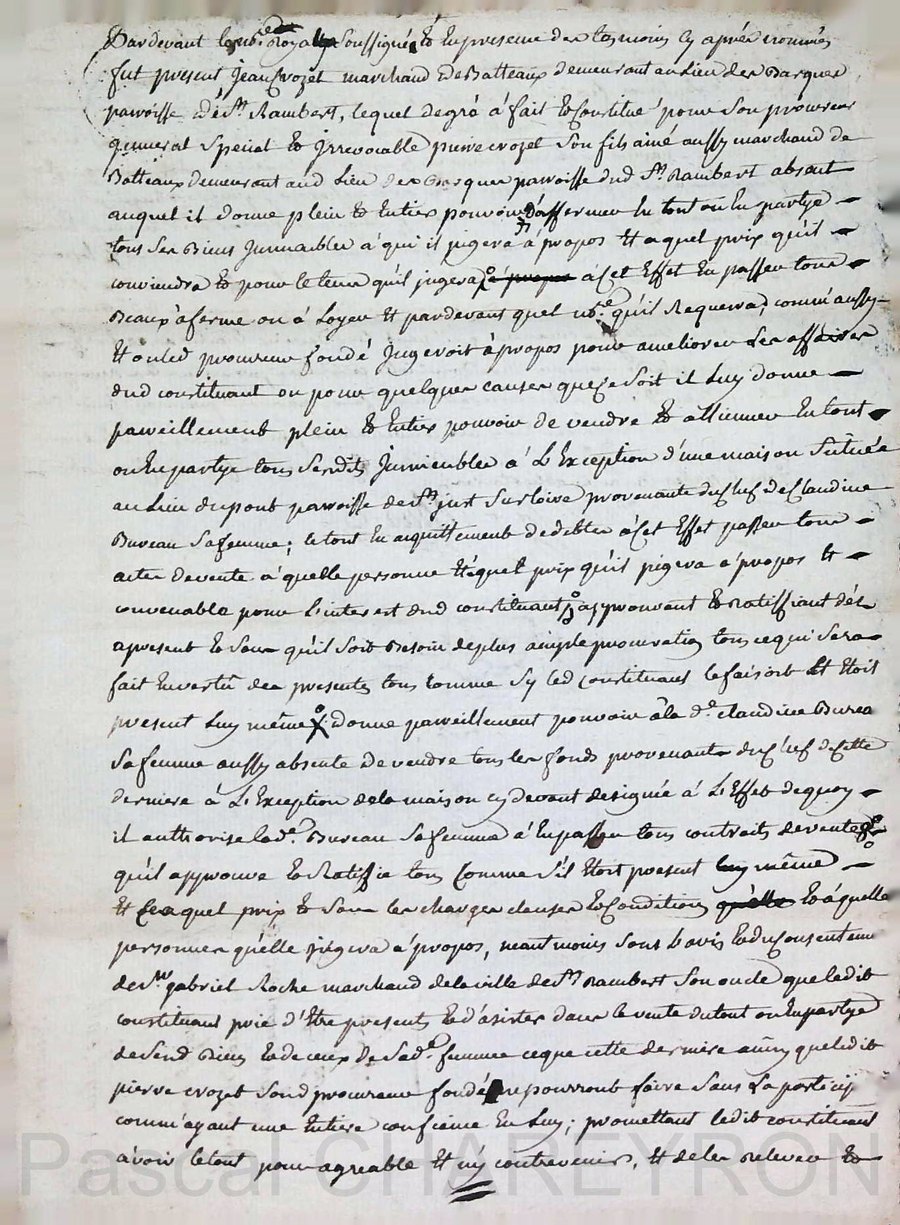 Pardevant le no.re Royal Soussigné Et En presence des tesmoins cy aprés nommés
fut present Jean Crozet marchand de Batteaux demeurant au Lieu des Barques
parroisse de St. Rambert, lequel de gré à fait Et Constitué pour Son procureur
general Special Et Irrevocable pierre crozet Son fils ainé aussy marchand de
Batteaux demeurant aud Lieu des Barques parroisse dud St. Rambert absant
auquel il donne plein Et Entier pouvoir d'affermer En tout ou En partye
tous Ses Biens Immeubles à qui il jugera à propos Et aquel prix qu'il
conviendra Et pour le tems qu'il jugera à Cet Effet En passer tous
Beaux à ferme ou à Loyer Et pardevant quel no.re qu'il Requerra, comm'aussy
Et ou led procureur fondé Jugeroit à propos pour ameliorer Les affaires
dud constituant ou pour quelques causes que ce Soit il Luy donne
pareillement plein Et Entier pouvoir de vendre Et alliener En tout
ou En partye tous Sesdits Immeubles à L'Exception d'une maison Scituée
au Lieu du pont parroisse de St. just Sur Loire provenante du Chef de Claudine
Bureau Sa femme; le tout En acquittement de debtes à Cet Effet passer tous
actes de vente à quelle personne Et à quel prix qu'il jugera à propos Et
convenable pour L'interest dud constituant aprouvant Et Ratiffiant dés
apresent Et Sans qu'il Soit Besoin de plus ample procuration tout ce qui Sera
fait En vertu des presentes tous Comme Sy led constituant le faisoit Et Etoit
present Luy même donne pareillement pouvoir à la d.e Claudine Bureau
Sa femme aussy absente de vendre tous les fonds provenants du Chef de Cette
derniere à L'Exception de la maison cy devant designée à L'Effet de quoy
il authorise lad.e Bureau Sa femme à En passer tous contrats de vente
qu'il approuve Et Ratiffie tous Comme S'il Etoit present luy même
Et à quel prix Et Sous les charges clauses Et Conditions qu'elle Et à quelle
personnes qu'elle jugera à propos, neantmoins Sous L'avis Et du Consentement
de Sr. gabriel Roche marchand de la ville de St. Rambert Son oncle que ledit
constituant prie d'Etre present Et d'asister dans le vente du tout ou En partye
de Sesd Biens Et de ceux de Sad.e femme ce que cette derniere ainsy que ledit
pierre crozet Sond procureur fondé ne pourront faire Sans La particip
comm'ayant une Entiere confience En Luy; promettant ledit constituant
avoir le tout pour agreable Et n'y contrevenir, Et de les relever Et
Pascal CHAREYRON